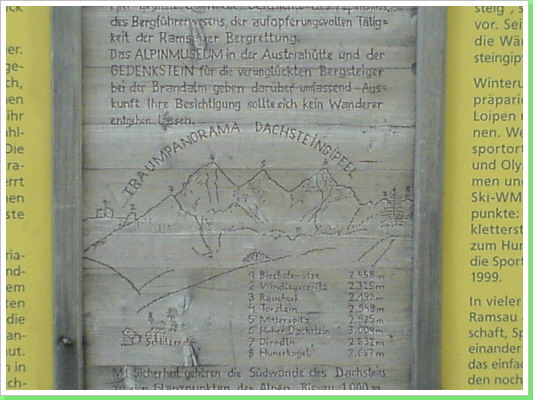 des Bergführerwesens, der aufopferungsvollen Tätig-
keit der Ramsauer Bergrettung.
Das ALPINMUSEUM in der Austriahütte und der
GEDENKSTEIN für die verunglückten Bergsteiger
bei der Brandalm geben darüber umfassend Aus-
kunft Ihre Besichtigung sollte sich kein Wanderer
entgehen lassen.
TRAUMPANORAMA DACHSTEINGIPFEL
1 Bischofsmütze 2.458 m
2 Windlegerspitz 2.325 m
3 Raucheck 2.192 m
4 Torstein 2.948 m
5 Mitterspitz 2.925 m
6 Hoher Dachstein 3.004 m
7 Dirndln 2.832 m
8 Hunerkogel 2.687 m
Mit Sicherheit gehören die Südwände des Dachsteins
zu den Glanzpunkten der Alpen. Bis zu 1.000 m
steig,
vor. Sei
die Wä
steingip
Winteru
präpari
Loipen
nen. We
sportor
und Oly
men un
Ski-WM
punkte:
kletterst
zum Hun
die Spor
1999.
In vieler
Ramsau
schaft, Sp
einander
das einfac
den noch